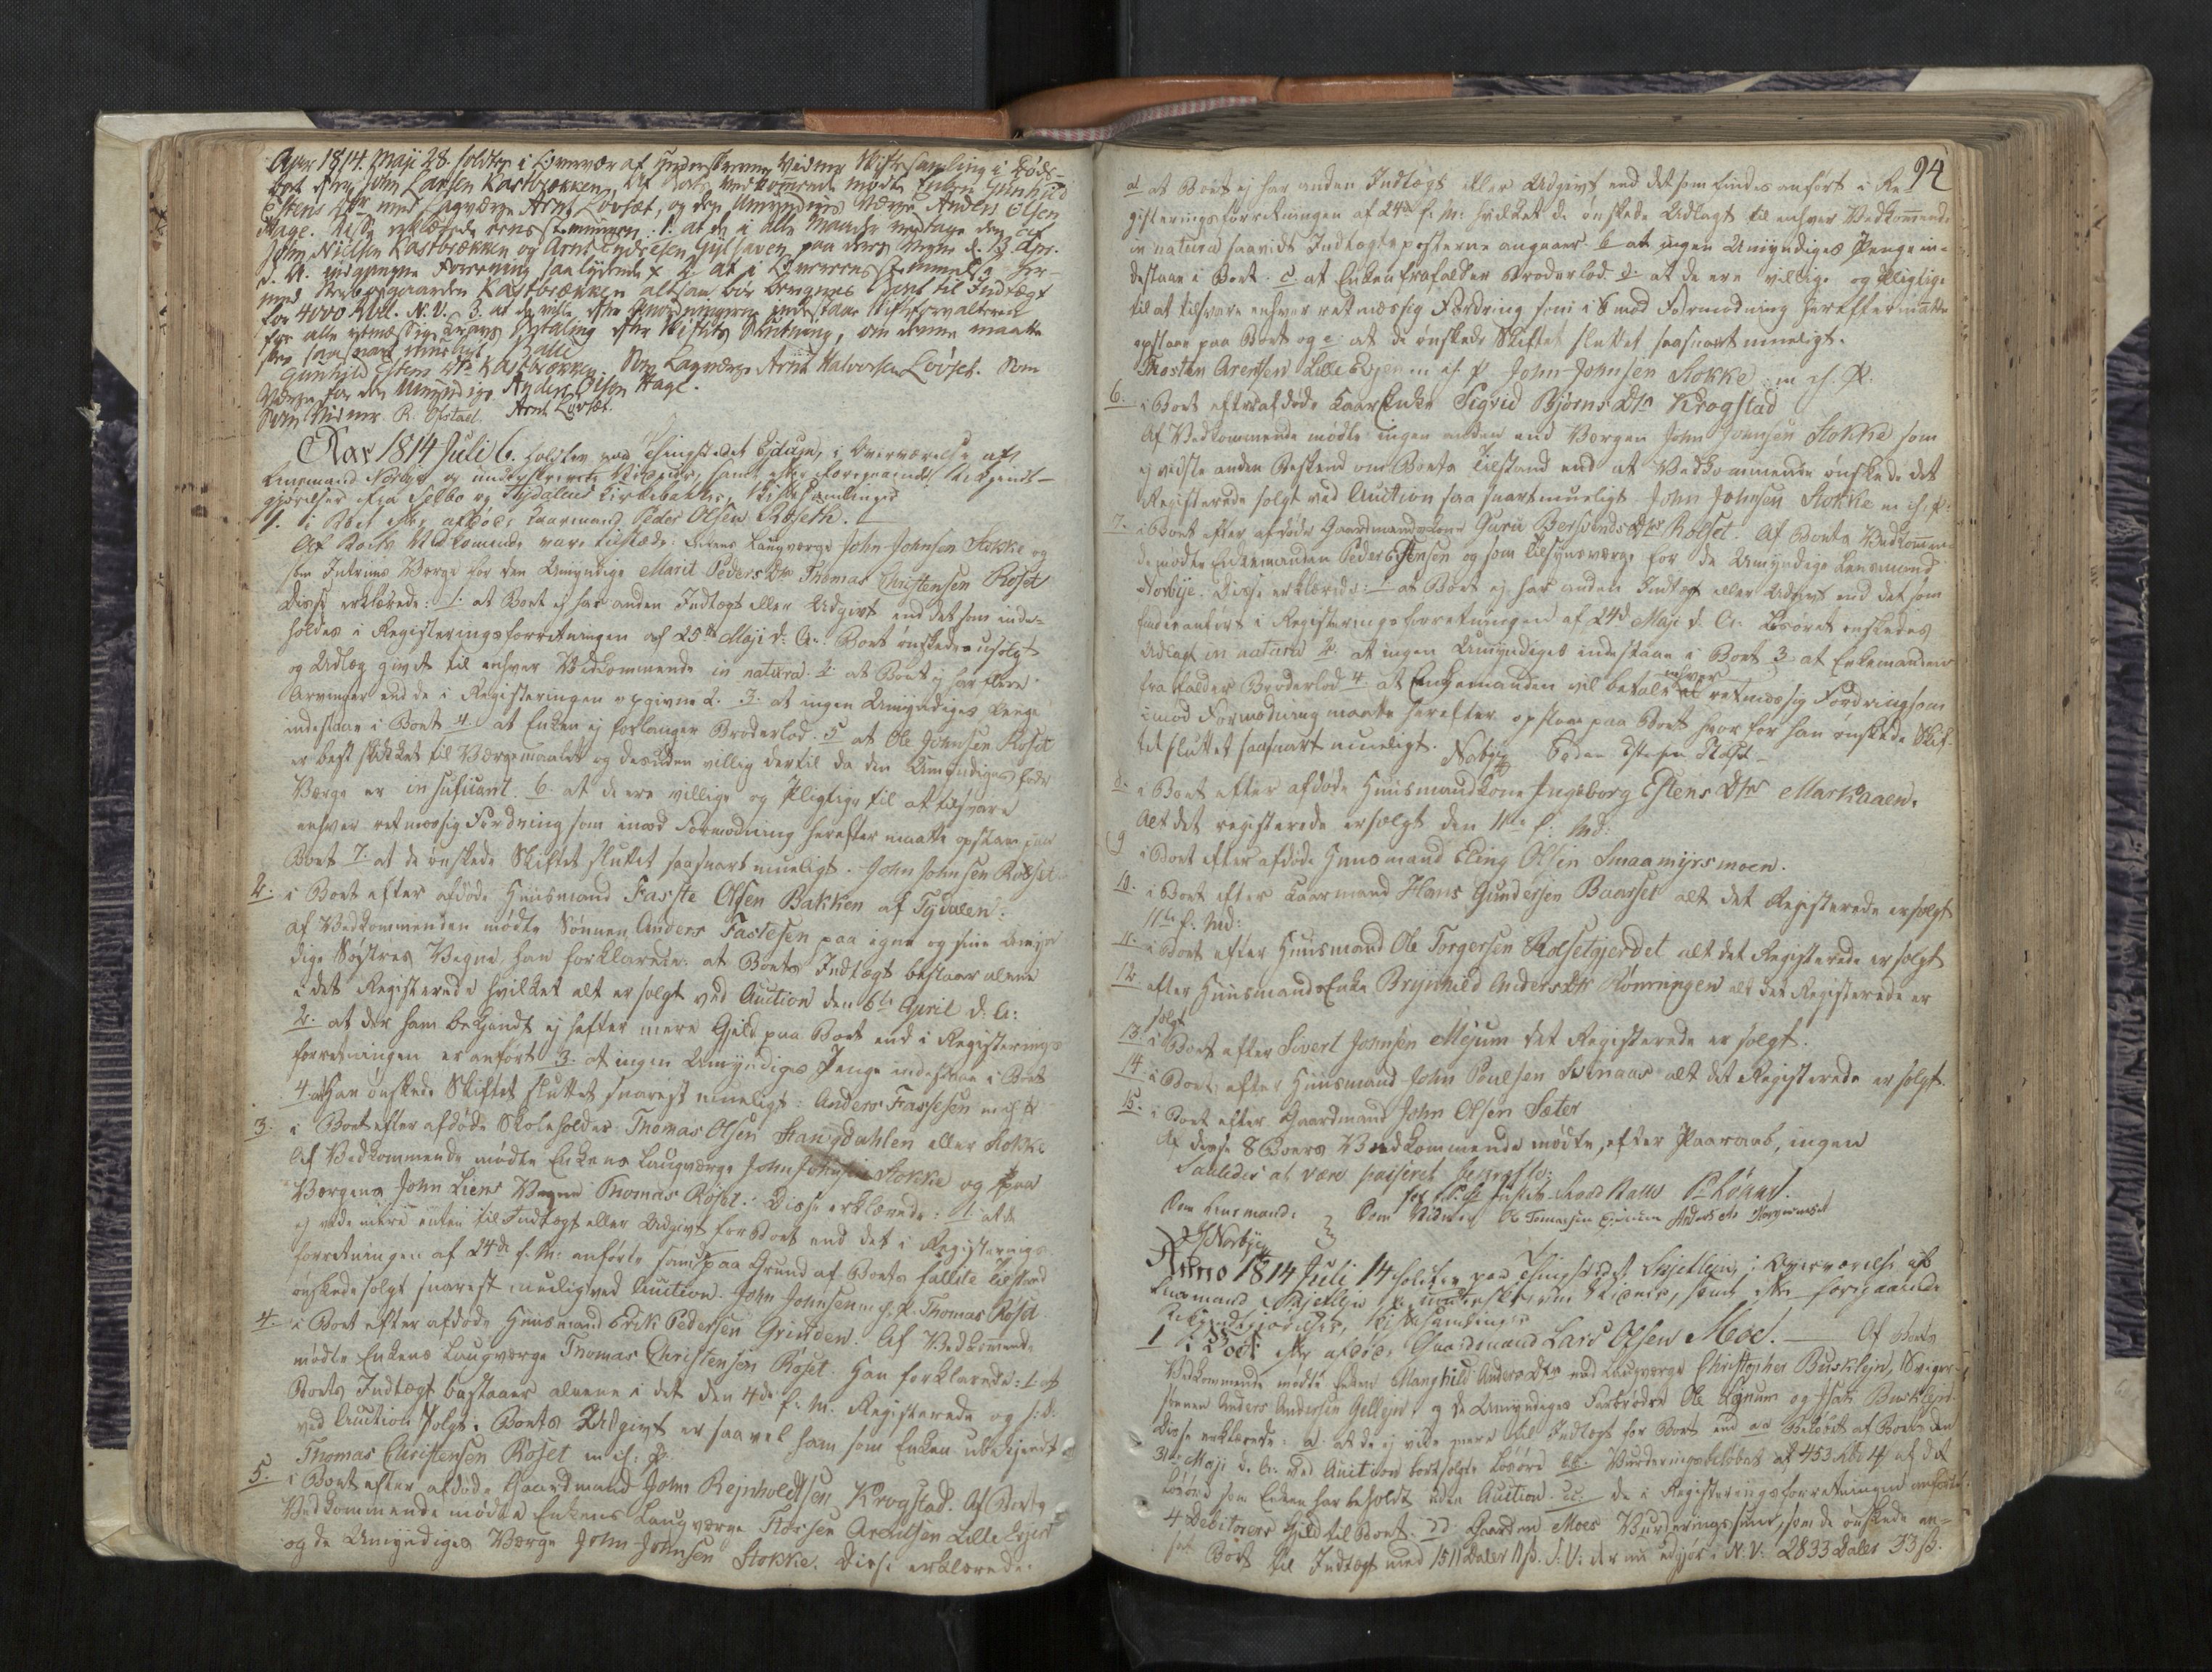 Aar 1814. Maji 28. holdtes i Overvær af Underskrevne Vidner Skiftesamling i Døds-
boet efter John Larsen Kastbrækken. Af Boets Vedkommende mødte Enken Gunhild
Estens Dtr med Lagværge Arnt Løvset, og den Umyndiges Værge Anders Olsen
Hage. Disse erklærede eenstemmigen: 1. at de i alle Maader vedtage den af
John Nielsen Kastbrækken og Arnt paa deres Vegne d. 13 Apr.
d. A. indgangne Forening saalydende 2. at i Overeensstemmelse her-
med Gaarden Kastbrækken altsaa bør beregnes Boet til Indtægt
for 4000 Rbdl. N. V. 3. at de ville efter Anordningerne indestaae Skifteforvalteren
for alle retmæssige Kravs Betaling efter Skiftets Slutning, om denne maatte
skee saasnart mueligt.
Gunhild Estens Dtr Kastbrækken. Som Lagværge Arnt Halvorsen Løvset. Som
Værge for den Umyndige Anders Olsen Hage.
Som Vidner R. Opstad. Arnt Løvset.
Aar 1814 Juli 6. holdtes paa Thingstedet Eidum, i Overværelse af
Lensmand Norbye og underskrevne Vidner, samt efter foregaaende Bekjendt-
gjørelser fra Selbo og Tydalens Kirkebakker, Skiftesamlinger
1. i Boet efter afdøde Kaarmand Peder Olsen Røseth.
Af Boets Vedkommende vare tilstæde: Enkens Laugværge John Johnsen Stokke og
som Interims Værge for den Umyndige Marit Peders Dtr Thomas Christensen Røset
Disse erklærede: 1. at Boet ej har anden Indtægt eller Udgivt end det som inde-
holdes i Registeringsforretningen af 25de Maji d. A. Boet ønskedes usolgt
og Udlæg givet til enhver Vedkommende in natura. 2. at Boet ej har flere
Arvinger end de i Registeringen opgivne 2. 3. at ingen Umyndiges Penge
indestaae i Boet 4. at Enken ej forlanger Broderlod. 5 at Ole Johnsen Røset
er best skikket til Værgemaalet og desuden villig dertil da den Umyndiges føde
Værge er insuficant. 6. at de ere villige og pligtige til at tilsvare
enhver retmæssig Fordring som imod Formodning herefter maatte opstaae paa
Boet 7. at de ønskede Skiftet sluttet saasnart mueligt. John Johnsen Røset
2. i Boet efter afdøde Huusmand Faste Olsen Bakken af Tydalen.
Af Vedkommenden mødte Sønnen Anders Fastesen paa egne og sine Umyn
dige Søstres Vegne, han forklarede: at Boets Indtægt bestaar alene
i det Registerede hvilket alt er solgt ved Auction den 6te April d. A:
2. at der ham bekjendt ej hefter mere Gjeld paa Boet end i Registerings
forretningen er anført 3. at ingen Umyndiges Penge indestaae i Boet
4. at Han ønskede Skiftet sluttet snarest mueligt: Anders Fastesen m. f. P.
3. i Boet efter afdøde Skoleholder Thomas Olsen Stangdahlen eller Stokke
Af Vedkommende mødte Enkens Laugværge John Johnsen Stokke og paa
Værgens John Liens Vegne Thomas Røset: Disse erklærede: 1. at de
ej vide mere enten til Indtægt eller Udgivt for Boet end det i Registerings-
forretningen af 24de f. M: anførte samt paa Grund af Boets fallite Tilstand
ønskede solgt snarest mueligt ved Auction. John Johnsen m. f. P. Thomas Røset
4. i Boet efter afdøde Huusmand Erik Pedersen Grinden. Af Vedkommende
mødte Enkens Laugværge Thomas Christensen Røset. Han forklarede: 1. at
Boets Indtægt bestaaer alene i det den 4de f. M. Registerede og s. D.
ved Auction solgt. Boets Udgivt er saavel ham som Enken ubekjendt
Thomas Christensen Røset m. f: P.
5. i Boet efter afdøde Gaardmand John Rejnholdtsen Krogstad. Af Boets
Vedkommende mødte Enkens Laugværge Thosten Arentsen Lille Evjen
og de Umyndiges Værge John Johnsen Stokke. Disse erklærede:
94
a at Boet ej har anden Indtægt eller Udgivt end det som findes anført i Re
gisteringsforretningen af 24de f. M: hvilket de ønskede Udlagt til enhver Vedkommende
in natura saavidt Indtægtsposterne angaaer. b at ingen Umyndiges Penge in-
destaae i Boet. c at Enken frafalder Broderlod. d. at de ere villige og pligtige
til at tilsvare enhver retmæssig Fordring som imod Formodning herefter maatte
opstaae paa Boet og e: at de ønskede Skiftet sluttet saasnart mueligt.
Thosten Arentsen Lille Evjen m. f. P. John Johnsen Stokke m. f. P.
6. i Boet efter afdøde Kaar Enke Sigrid Bjørns Dtr Krogstad
Af Vedkommende mødte ingen anden end Værgen John Johnsen Stokke som
ej vidste anden Beskeed om Boets Tilstand end at Vedkommende ønskede det
Registerede solgt ved Auction saa snart mueligt John Johnsen Stokke m. f. P:
7. i Boet efter afdøde Gaardmandskone Guru Bersvends Dtr Rolset. Af Boets Vedkommen
de mødte Enkemanden Peder Estensen og som Tilsynsværge for de Umyndige Lensmand
Norbye. Disse erklærede: 1. at Boet ej har anden Indtægt eller Udgivt end det som
findes anført i Registeringsforretningen af 24de Maji d. A. Løsøret ønskedes
Udlagt in natura 2. at ingen Umyndiges indestaae i Boet 3. at Enkemanden
frafalder Broderlod 4. at Enkemanden vil betale enhver retmæssig Fordring som
imod Formodning maatte herefter opstaae paa Boet hvorfor han ønskede Skif-
tet sluttet saasnart mueligt. Norbye Peder Estensen Rolset
8. i Boet efter afdøde Huusmandkone Ingeborg Estens Dtr Markaaen.
Alt det registerede er solgt den 11te f: Md:
9 i Boet efter afdøde Huusmand Eling Olsen Smaamyrsmoen.
10. i Boet efter Kaarmand Hans Gundersen Baarset alt det Registerede er solgt
11te f: Md:
11. i Boet efter Huusmand Ole Torgersen Rolsetgjerdet alt det Registerede er solgt
12. efter Huusmands Enke Brynhild Anders Dtr Rønningen alt det Registerede er
solgt
13. i Boet efter Sivert Johnsen Mejum det Registerede er solgt.
14. i Boet efter Huusmand John Poulsen Svinaas alt det Registerede er solgt.
15. i Boet efter Gaardmand John Olsen Sæter
Af disse 8 Boers Vedkommende mødte, efter Paaraab, ingen
Saaledes at være passeret bekræfte:
Som Lensmand: Som Vidner Ole Tomassen Eidum Anders
Norbye
Anno 1814 Juli 14 holdtes paa Thingstedet, i Overværelse af
Lensmand og underskrevne Vidner, samt efter foregaaende
Bekjendtgjørelser, Skiftesamlinger
1 i Boet efter afdøde Gaardmand Lars Olsen Moe. Af Boets
Vedkommende mødte Enken Marghild Anders Dtr med Laugværge Christopher Busklejn, Sviger-
sønnen Anders Andersen Gellejn, og de Umyndiges Farbrødre Ole Lønum og Isak Busklejn.
Disse erklærede: a. at de ej vide mere til Indtægt for Boet end aa Beløbet af Boets den
31te Maji d. A. ved Auction bortsolgte Løsøre bb. Vurderingsbeløbet af 453 Rbd 14 af det
Løsøre som Enken har beholdt uden Auction. cc. de i Registeringsforretningen anførte
4 Debitorers Gjeld til Boet. dd Gaarden Moes Vurderingssum, som de ønskede an-
sat Boet til Indtægt med 1511 Daler 11 ß. S: V: der nu udgjør i N. V. 2833 Daler 33 ß.